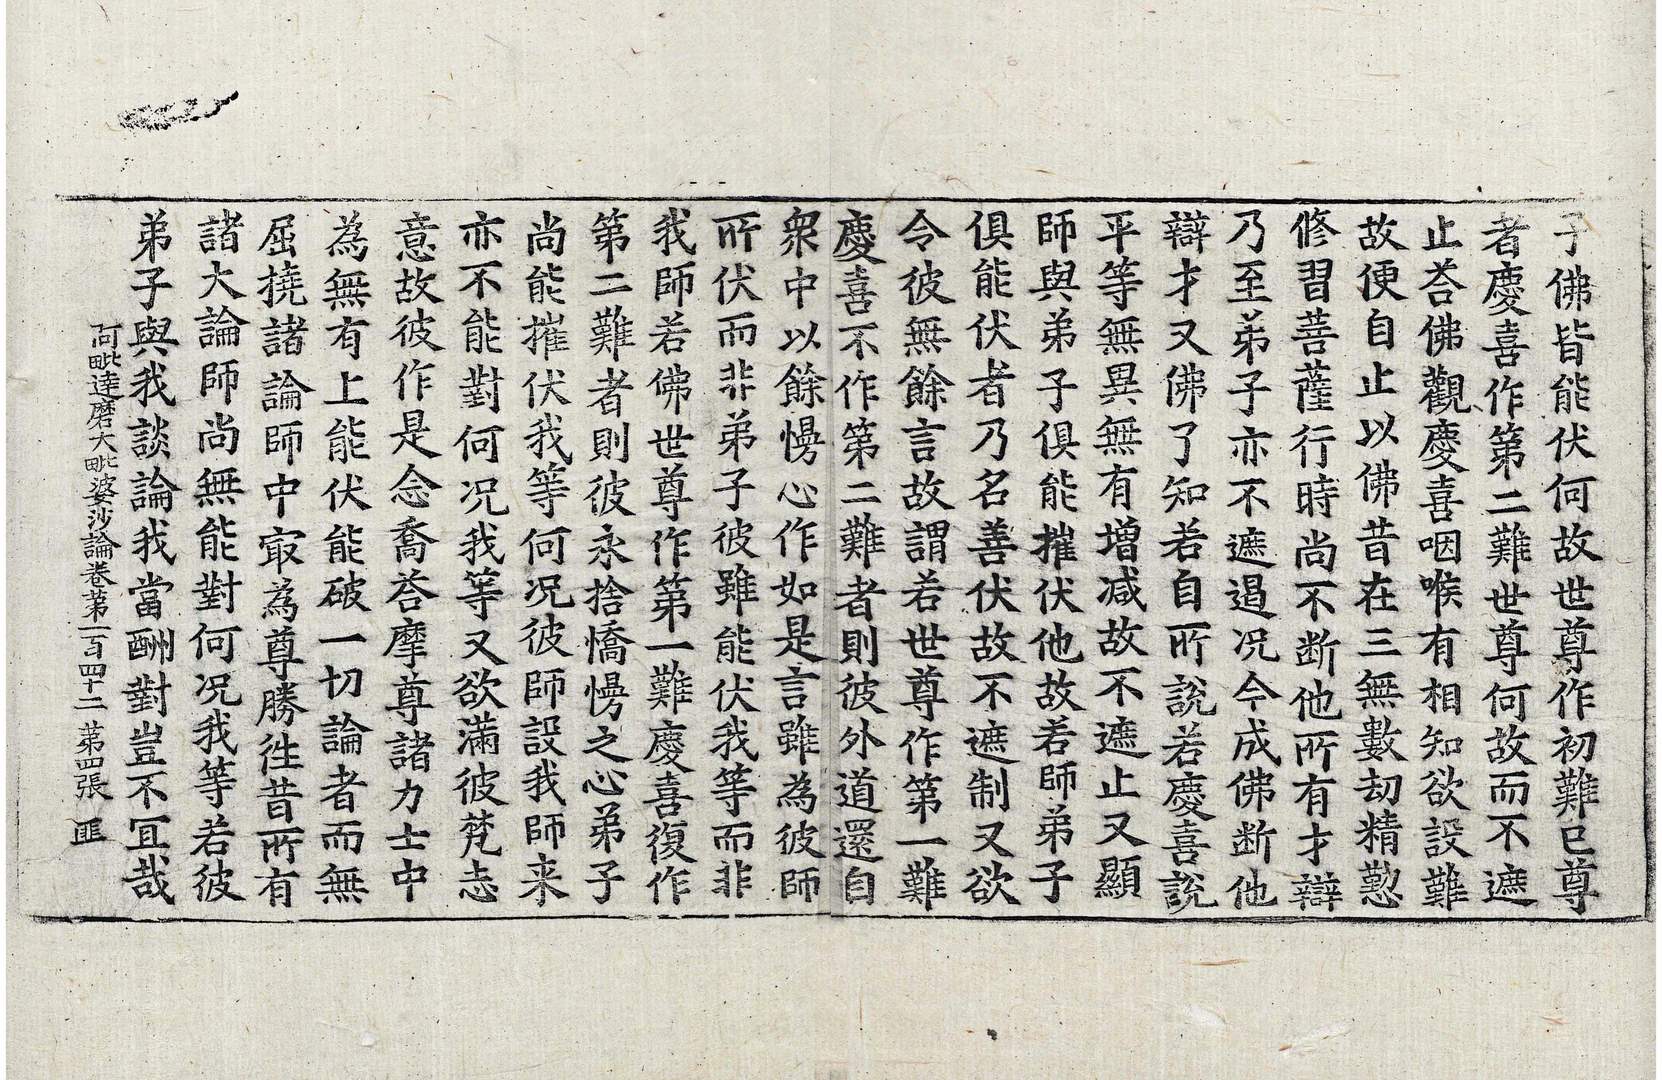 子佛皆能伏何故世尊作初難已尊
者慶喜作第二難世尊何故而不遮
止荅佛觀慶喜咽喉有相知欲設難
故便自止以佛昔在三無數劫精懃
修習菩薩行時尚不断他所有才辯
乃至弟子亦不遮遏况今成佛断他
辯才又佛了知若自所說若慶喜說
平等無異無有增减故不遮止又顯
師與弟子俱能摧伏他故若師弟子
俱能伏者乃名善伏故不遮制又欲
令彼無餘言故謂若世尊作第一難
慶喜不作第二難者則彼外道還自
衆中以餘慢心作如是言雖為彼師
所伏而非弟子彼雖能伏我等而非
我師若佛世尊作第一難慶喜復作
第二難者則彼永捨憍慢之心弟子
尚能摧伏我等何况彼師設我師来
亦不能對何况我等又欲滿彼梵志
意故彼作是念喬荅摩尊諸力士中
為無有上能伏能破一切論者而無
屈撓諸論師中㝡為尊勝徃昔所有
諸大論師尚無能對何况我等若彼
弟子與我談論我當酬對豈不冝哉
阿毗達磨大毗婆沙論卷第一百四十二 第四張 匪